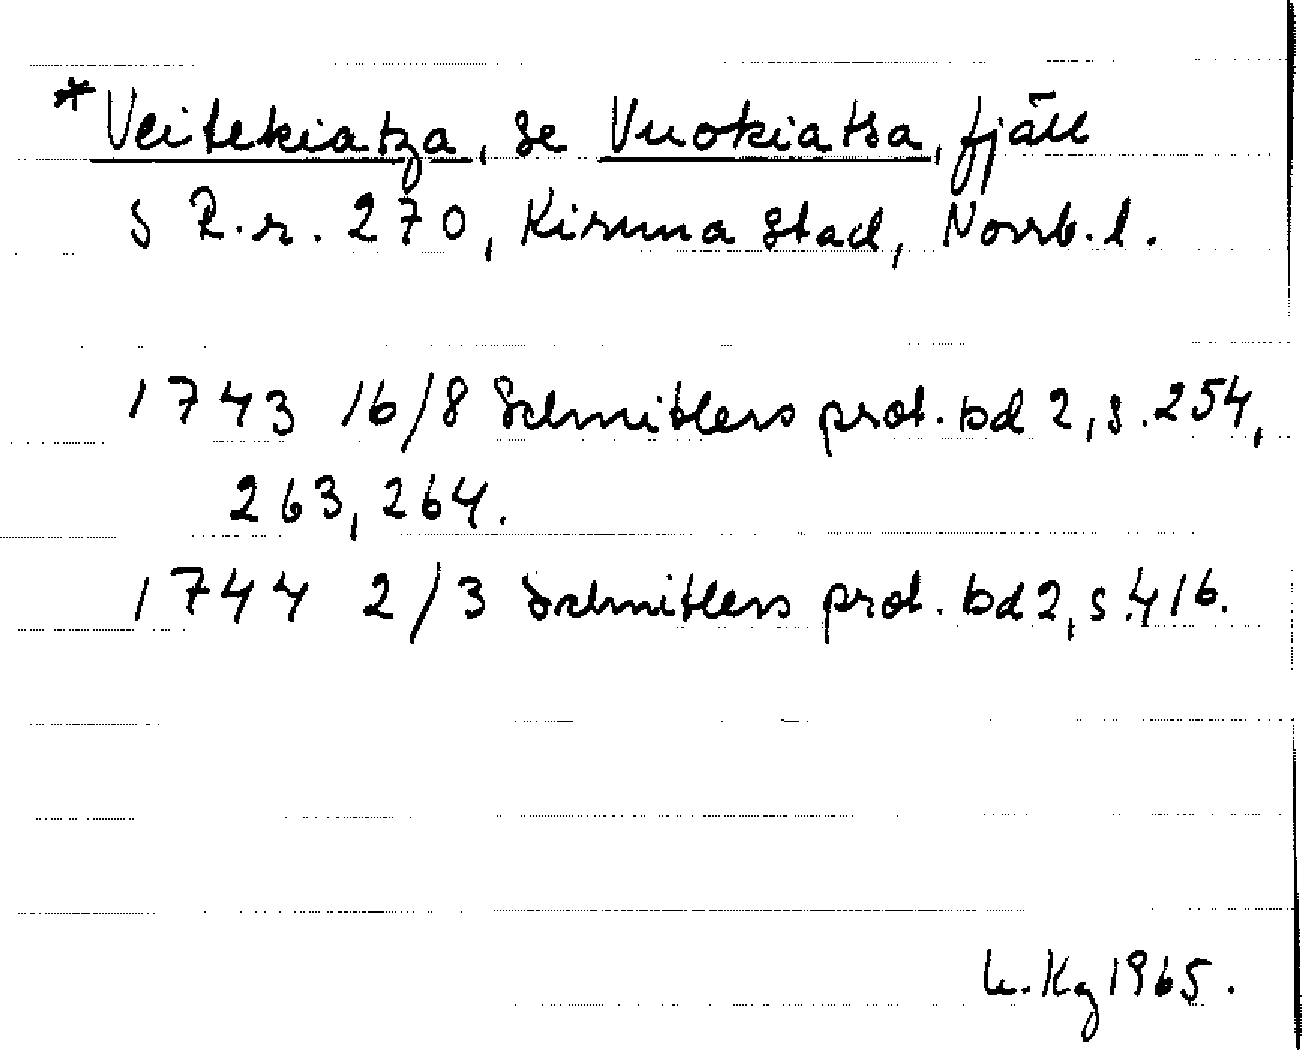 *Veitekiatza, se Vuokiatsa, fjäll
S R.r. 270, Kiruna stad, Norrb. l.
1743 16/8 Schnitlers prot. bd 2, s. 254,
263, 264.
1744 2/3 Schnitlers prot. bd 2, s. 416.
L. Kg 1965.